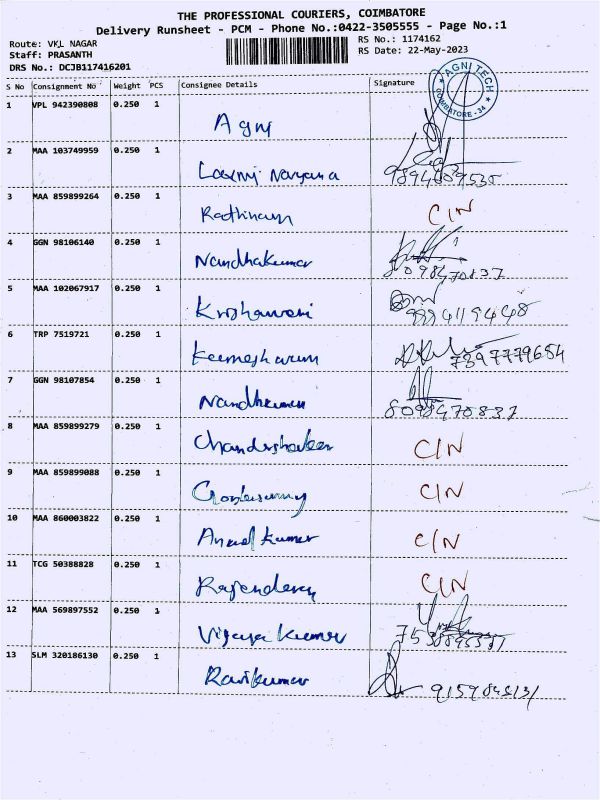 THE PROFESSIONAL COURIERS, COIMBATORE
Delivery Runsheet - PCM - Phone No.:0422-3505555 - Page No.:1
Route: VKL NAGAR
RS No.: 1174162
Staff: PRASANTH
RS Date: 22-May-2023
DRS No.: DCJB117416201
S No Consignment No Weight PCS Consignee Details Signature
AGNI TECH COIMBATORE - 34
1 VPL 942390808 0.250 1
Agni
2 MAA 103749959 0.250 1
Laxmi Narayana 9894089535
3 MAA 859899264 0.250 1
Rathinam C/N
4 GGN 98106140 0.250 1
Nandhakumar 8098470837
5 MAA 102067917 0.250 1
9994119448
6 TRP 7519721 0.250 1
7397779654
7 GGN 98107854 0.250 1
Nandkumar 8098470837
8 MAA 859899279 0.250 1
C/N
9 MAA 859899088 0.250 1
C/N
10 MAA 860003822 0.250 1
Anand kumar C/N
11 TCG 50388828 0.250 1
Rajenderan C/N
12 MAA 569897552 0.250 1
Vijaya kumar
13 SLM 320186130 0.250 1
Ravikumar